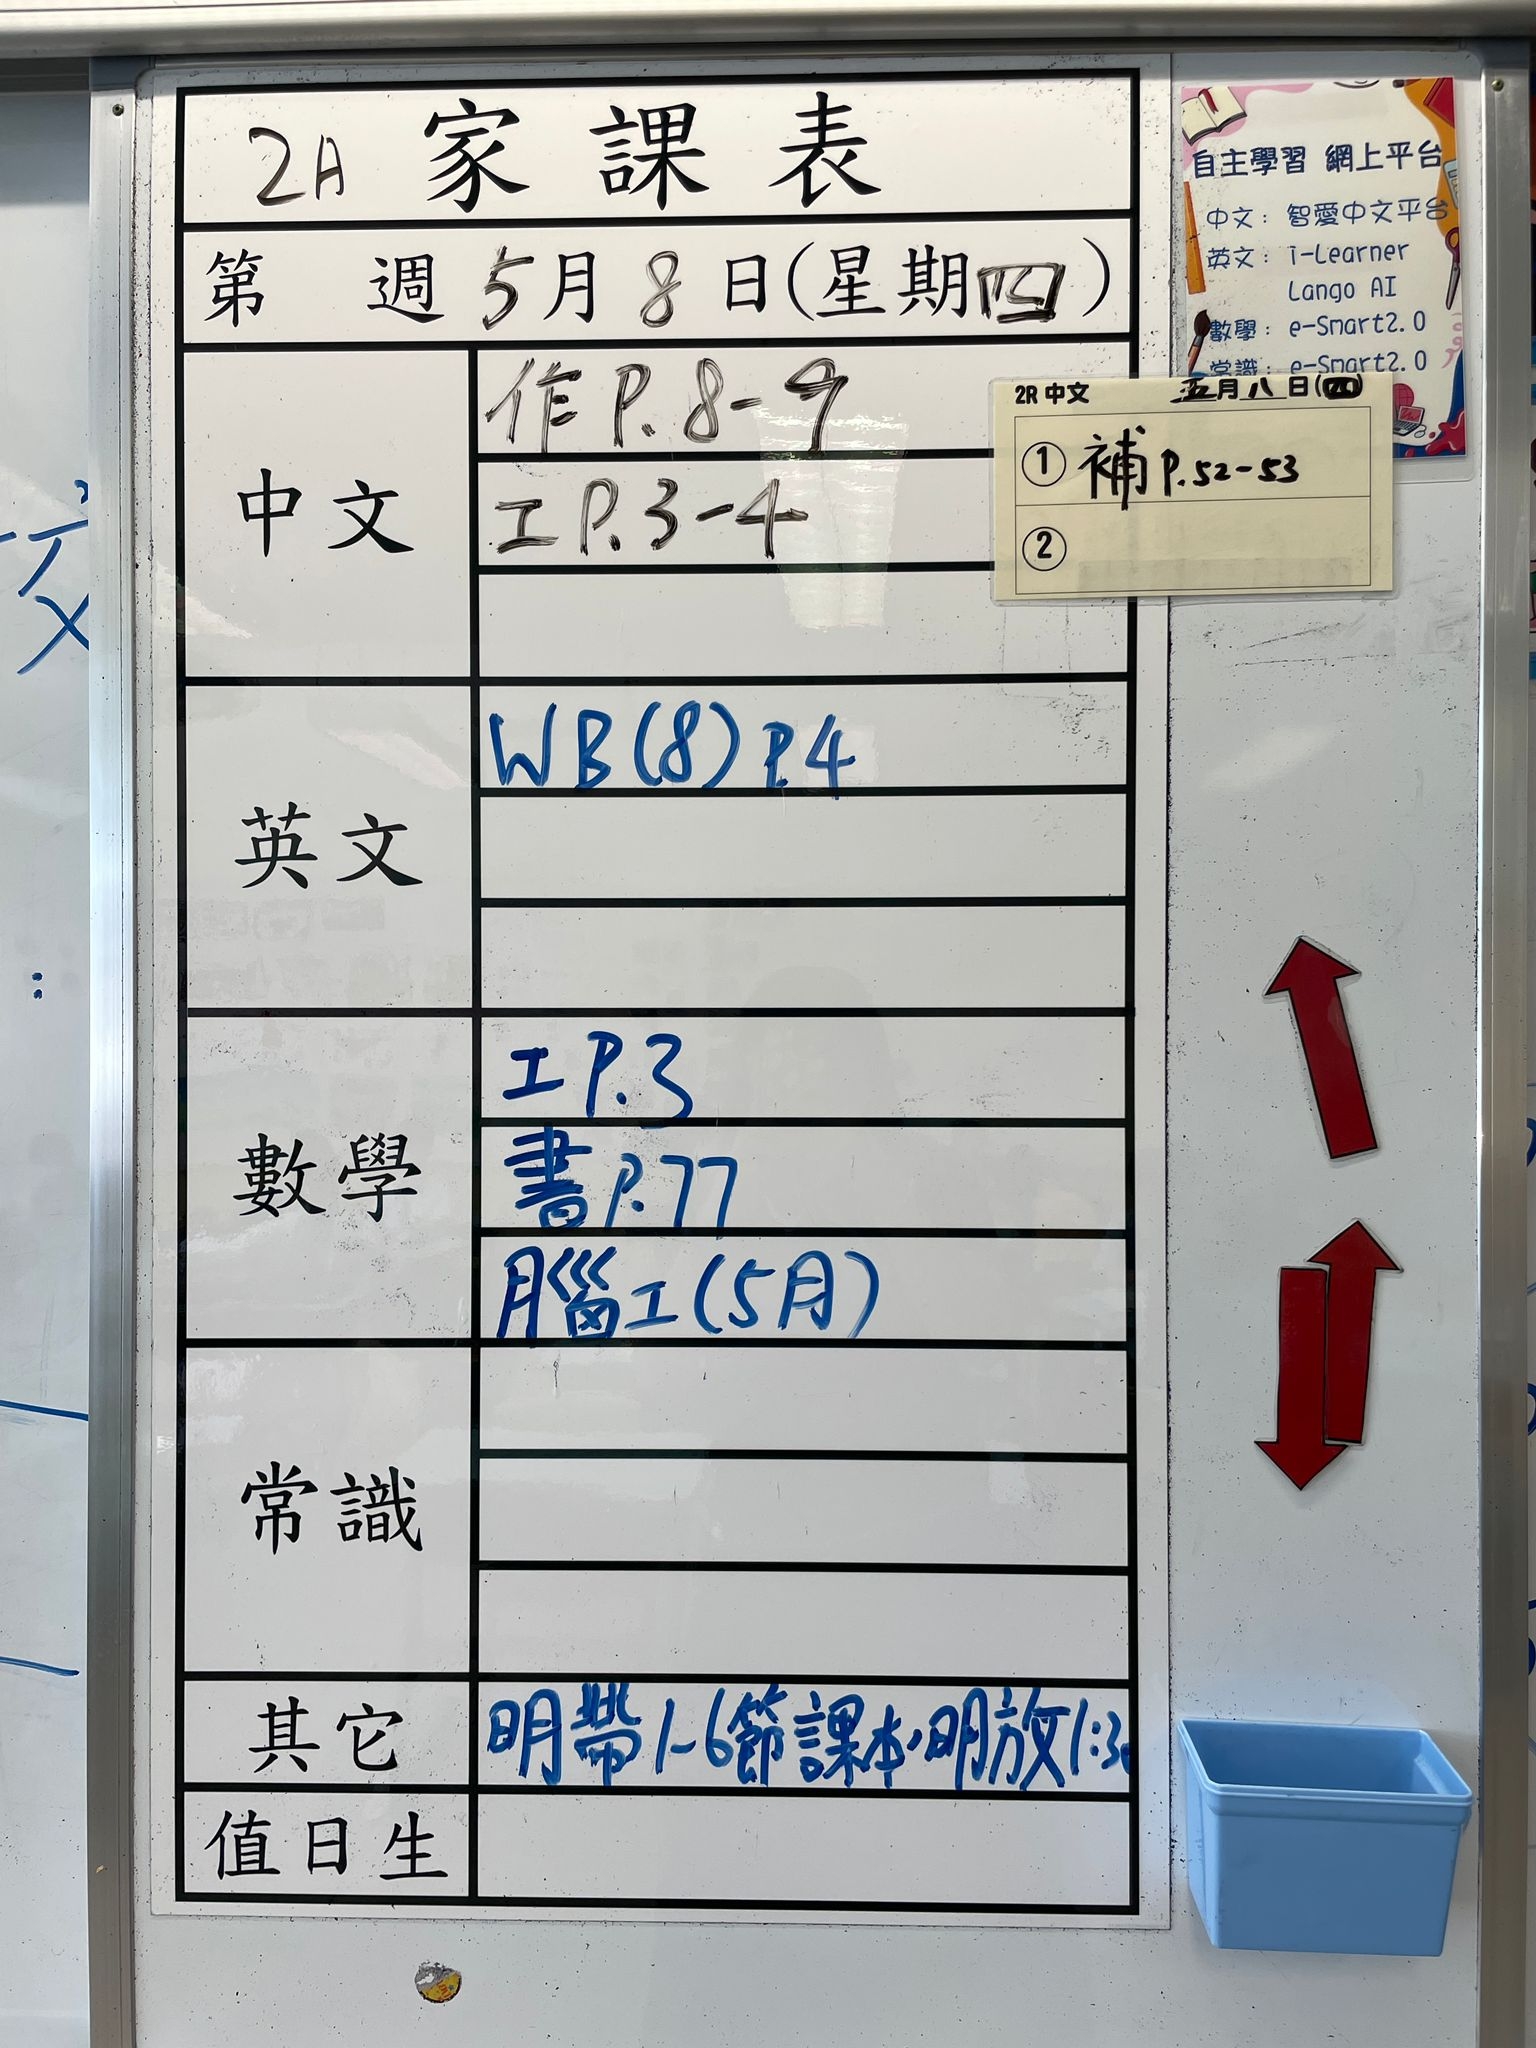 2A 家課表
第 週 5月8日(星期四)
中文
作P.8-9
工P.3-4
英文
WB(8) P.4
數學
工P.3
書P.77
腦工(5月)
常識
其它
明帶1-6節課本,明放1:30
值日生
自主學習 網上平台
中文: 智愛中文平台
英文: i-Learner
Lango AI
數學: e-Smart2.0
常識: e-Smart2.0
2R 中文 五月八日(四)
① 補P.52-53
②